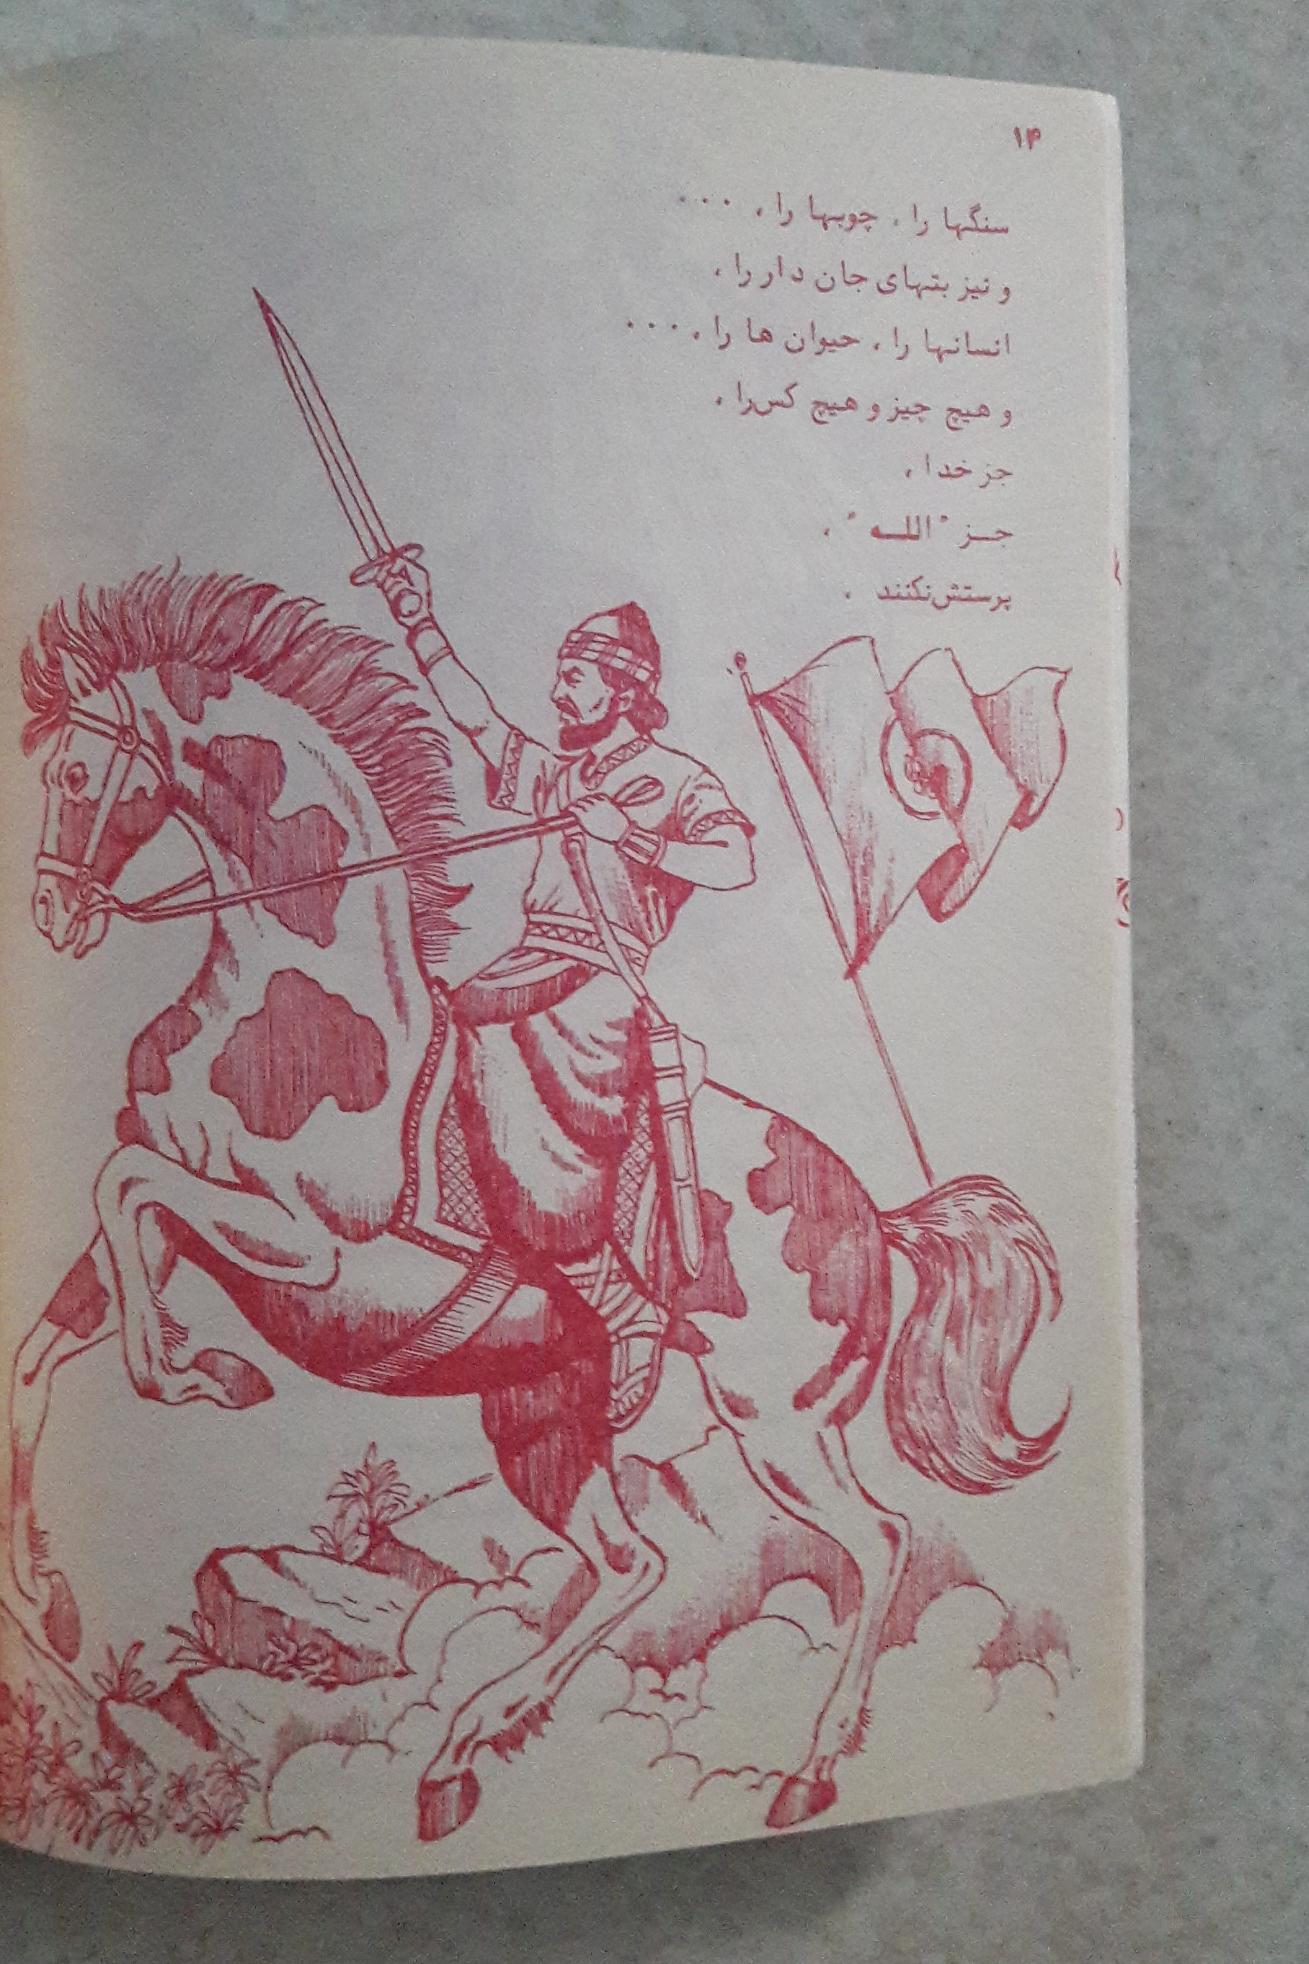 ۱۴
سنگها را ، چوبها را ، ....
و نیز بتهای جان دار را ،
انسانها را ، حیوان ها را ، ....
و هیچ چیز و هیچ کس‌را ،
جز خدا ،
جــز "اللــه" ،
پرستش‌نکنند .